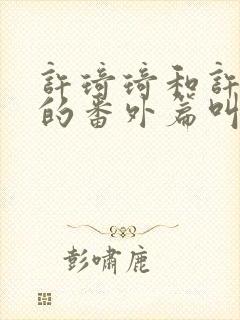 許琦琦和許
的番外篇叫
彭嘯鹿